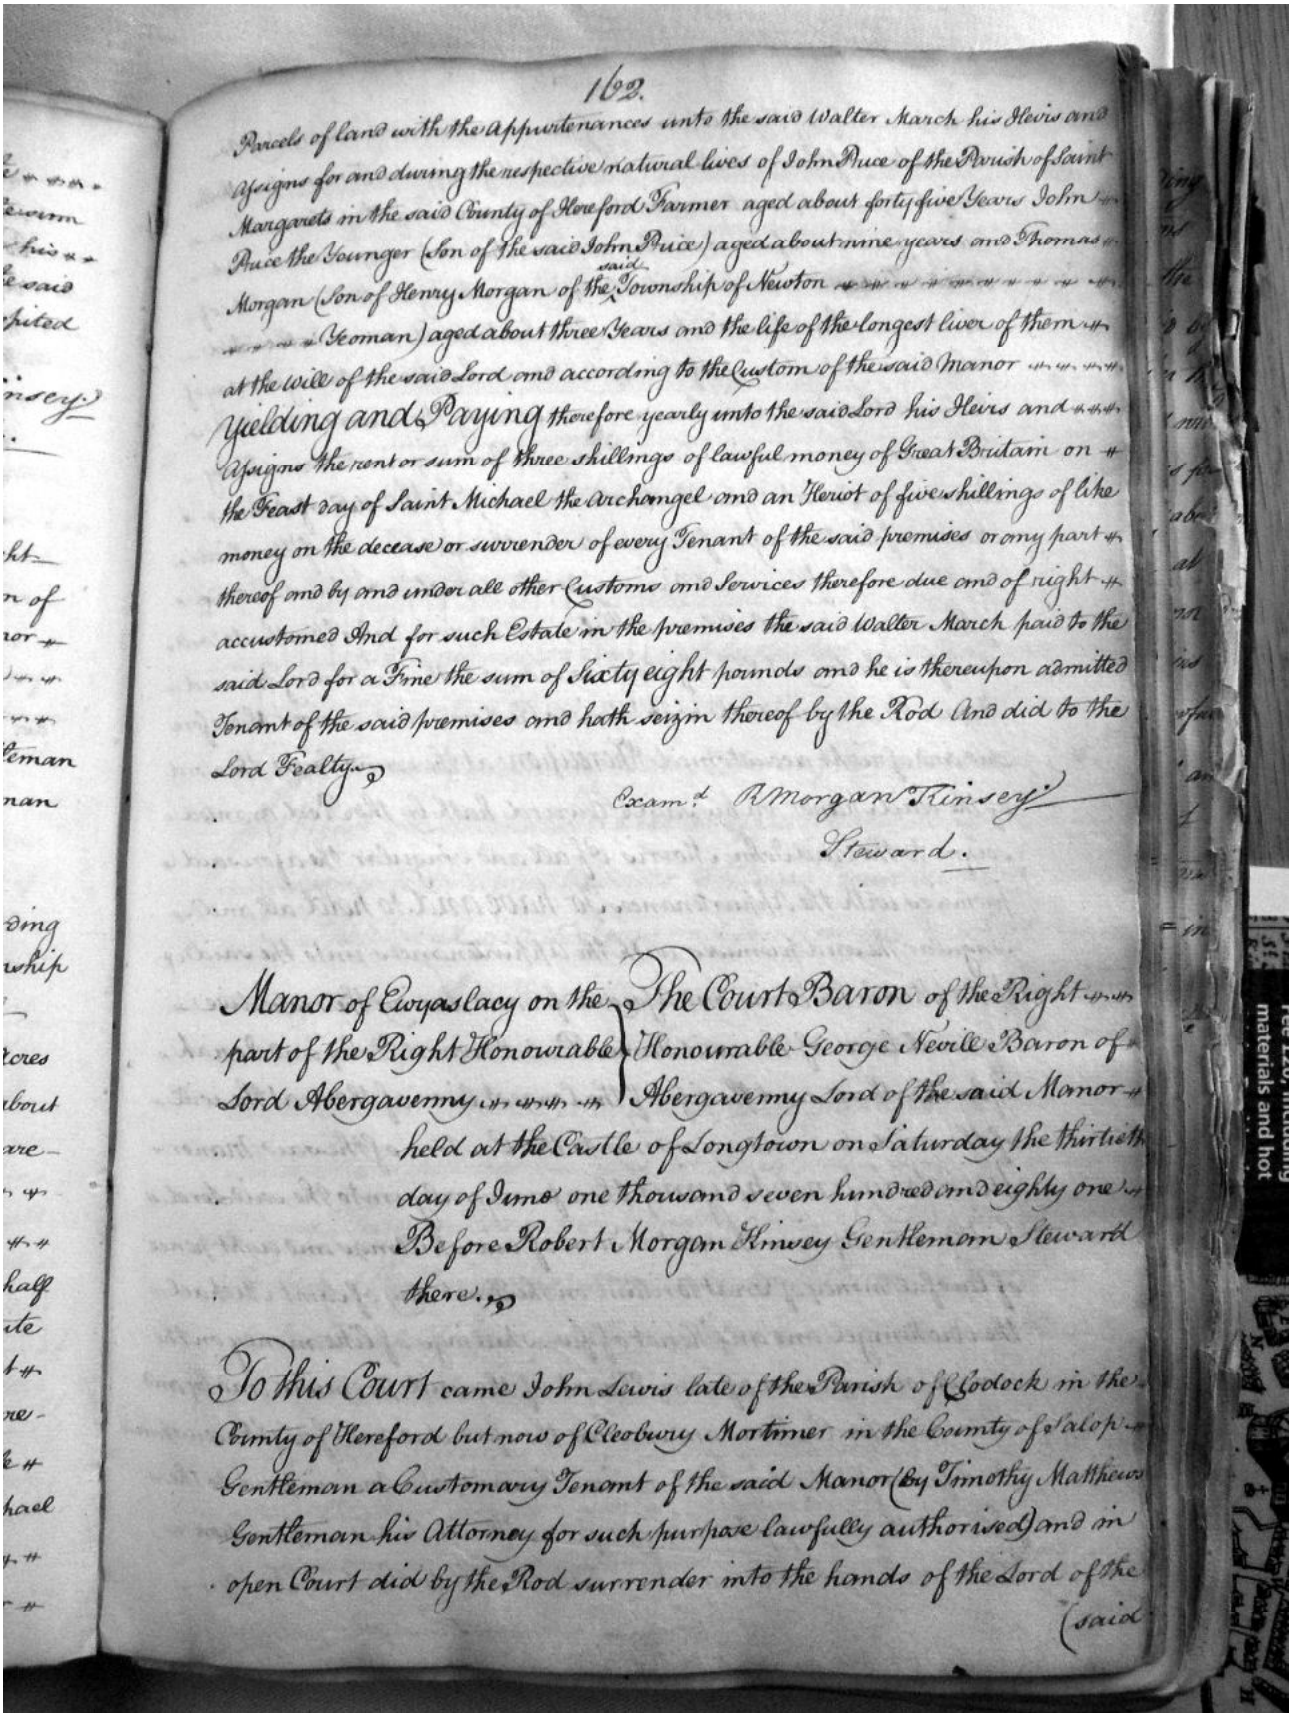 162.
Parcels of land with the Appurtenances unto the said Walter March his Heirs and
Assigns for and during the respective natural lives of John Price of the Parish of Saint
Margarets in the said County of Hereford Farmer aged about forty five Years John
Price the Younger (Son of the said John Price) aged about nine years and Thomas
said
Morgan (Son of Henry Morgan of the Township of Newton
Yeoman) aged about three Years and the life of the longest liver of them
at the Will of the said Lord and according to the Custom of the said Manor
Yielding and Paying therefore yearly unto the said Lord his Heirs and
Assigns the rent or sum of three shillings of lawful money of Great Britain on
the Feast day of Saint Michael the Archangel and an Heriot of five shillings of like
money on the decease or surrender of every Tenant of the said premises or any part
thereof and by and under all other Customs and Services therefore due and of right
accustomed And for such Estate in the premises the said Walter March paid to the
said Lord for a Fine the sum of Sixty eight pounds and he is thereupon admitted
Tenant of the said premises and hath seizin thereof by the Rod And did to the
Lord Fealty.
Exam.d R Morgan Kinsey
Steward.
Manor of Ewyaslacy on the
part of the Right Honourable
Lord Abergavenny
The Court Baron of the Right
Honourable George Nevill Baron of
Abergavenny Lord of the said Manor
held at the Castle of Longtown on Saturday the thirtieth
day of June one thousand seven hundred and eighty one
Before Robert Morgan Kinsey Gentleman Steward
there.
To this Court came John Lewis late of the Parish of Clodock in the
County of Hereford but now of Cleobury Mortimer in the County of Salop
Gentleman a Customary Tenant of the said Manor (by Timothy Matthews
Gentleman his Attorney for such purpose lawfully authorised) and in
open Court did by the Rod surrender into the hands of the Lord of the
(said
materials and hot